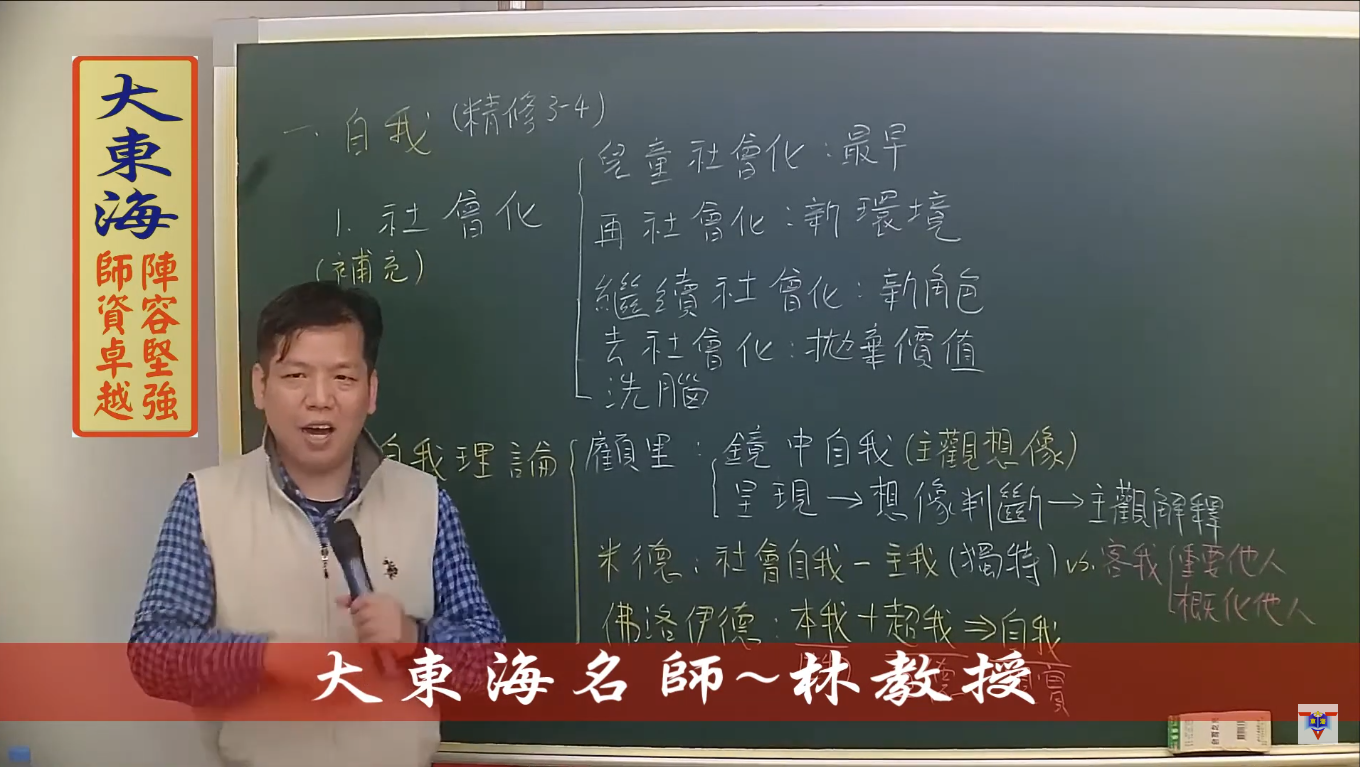 大東海
陣容堅強
師資卓越
一. 自我 (精修3-4)
1. 社會化
(補充)
兒童社會化：最早
再社會化：新環境
繼續社會化：新角色
去社會化：拋棄價值
洗腦
自我理論
顧里：鏡中自我(主觀想像)
呈現→想像判斷→主觀解釋
米德：社會自我－主我(獨特) vs. 客我
重要他人
概化他人
佛洛伊德：本我＋超我⇒自我
大東海名師~林教授